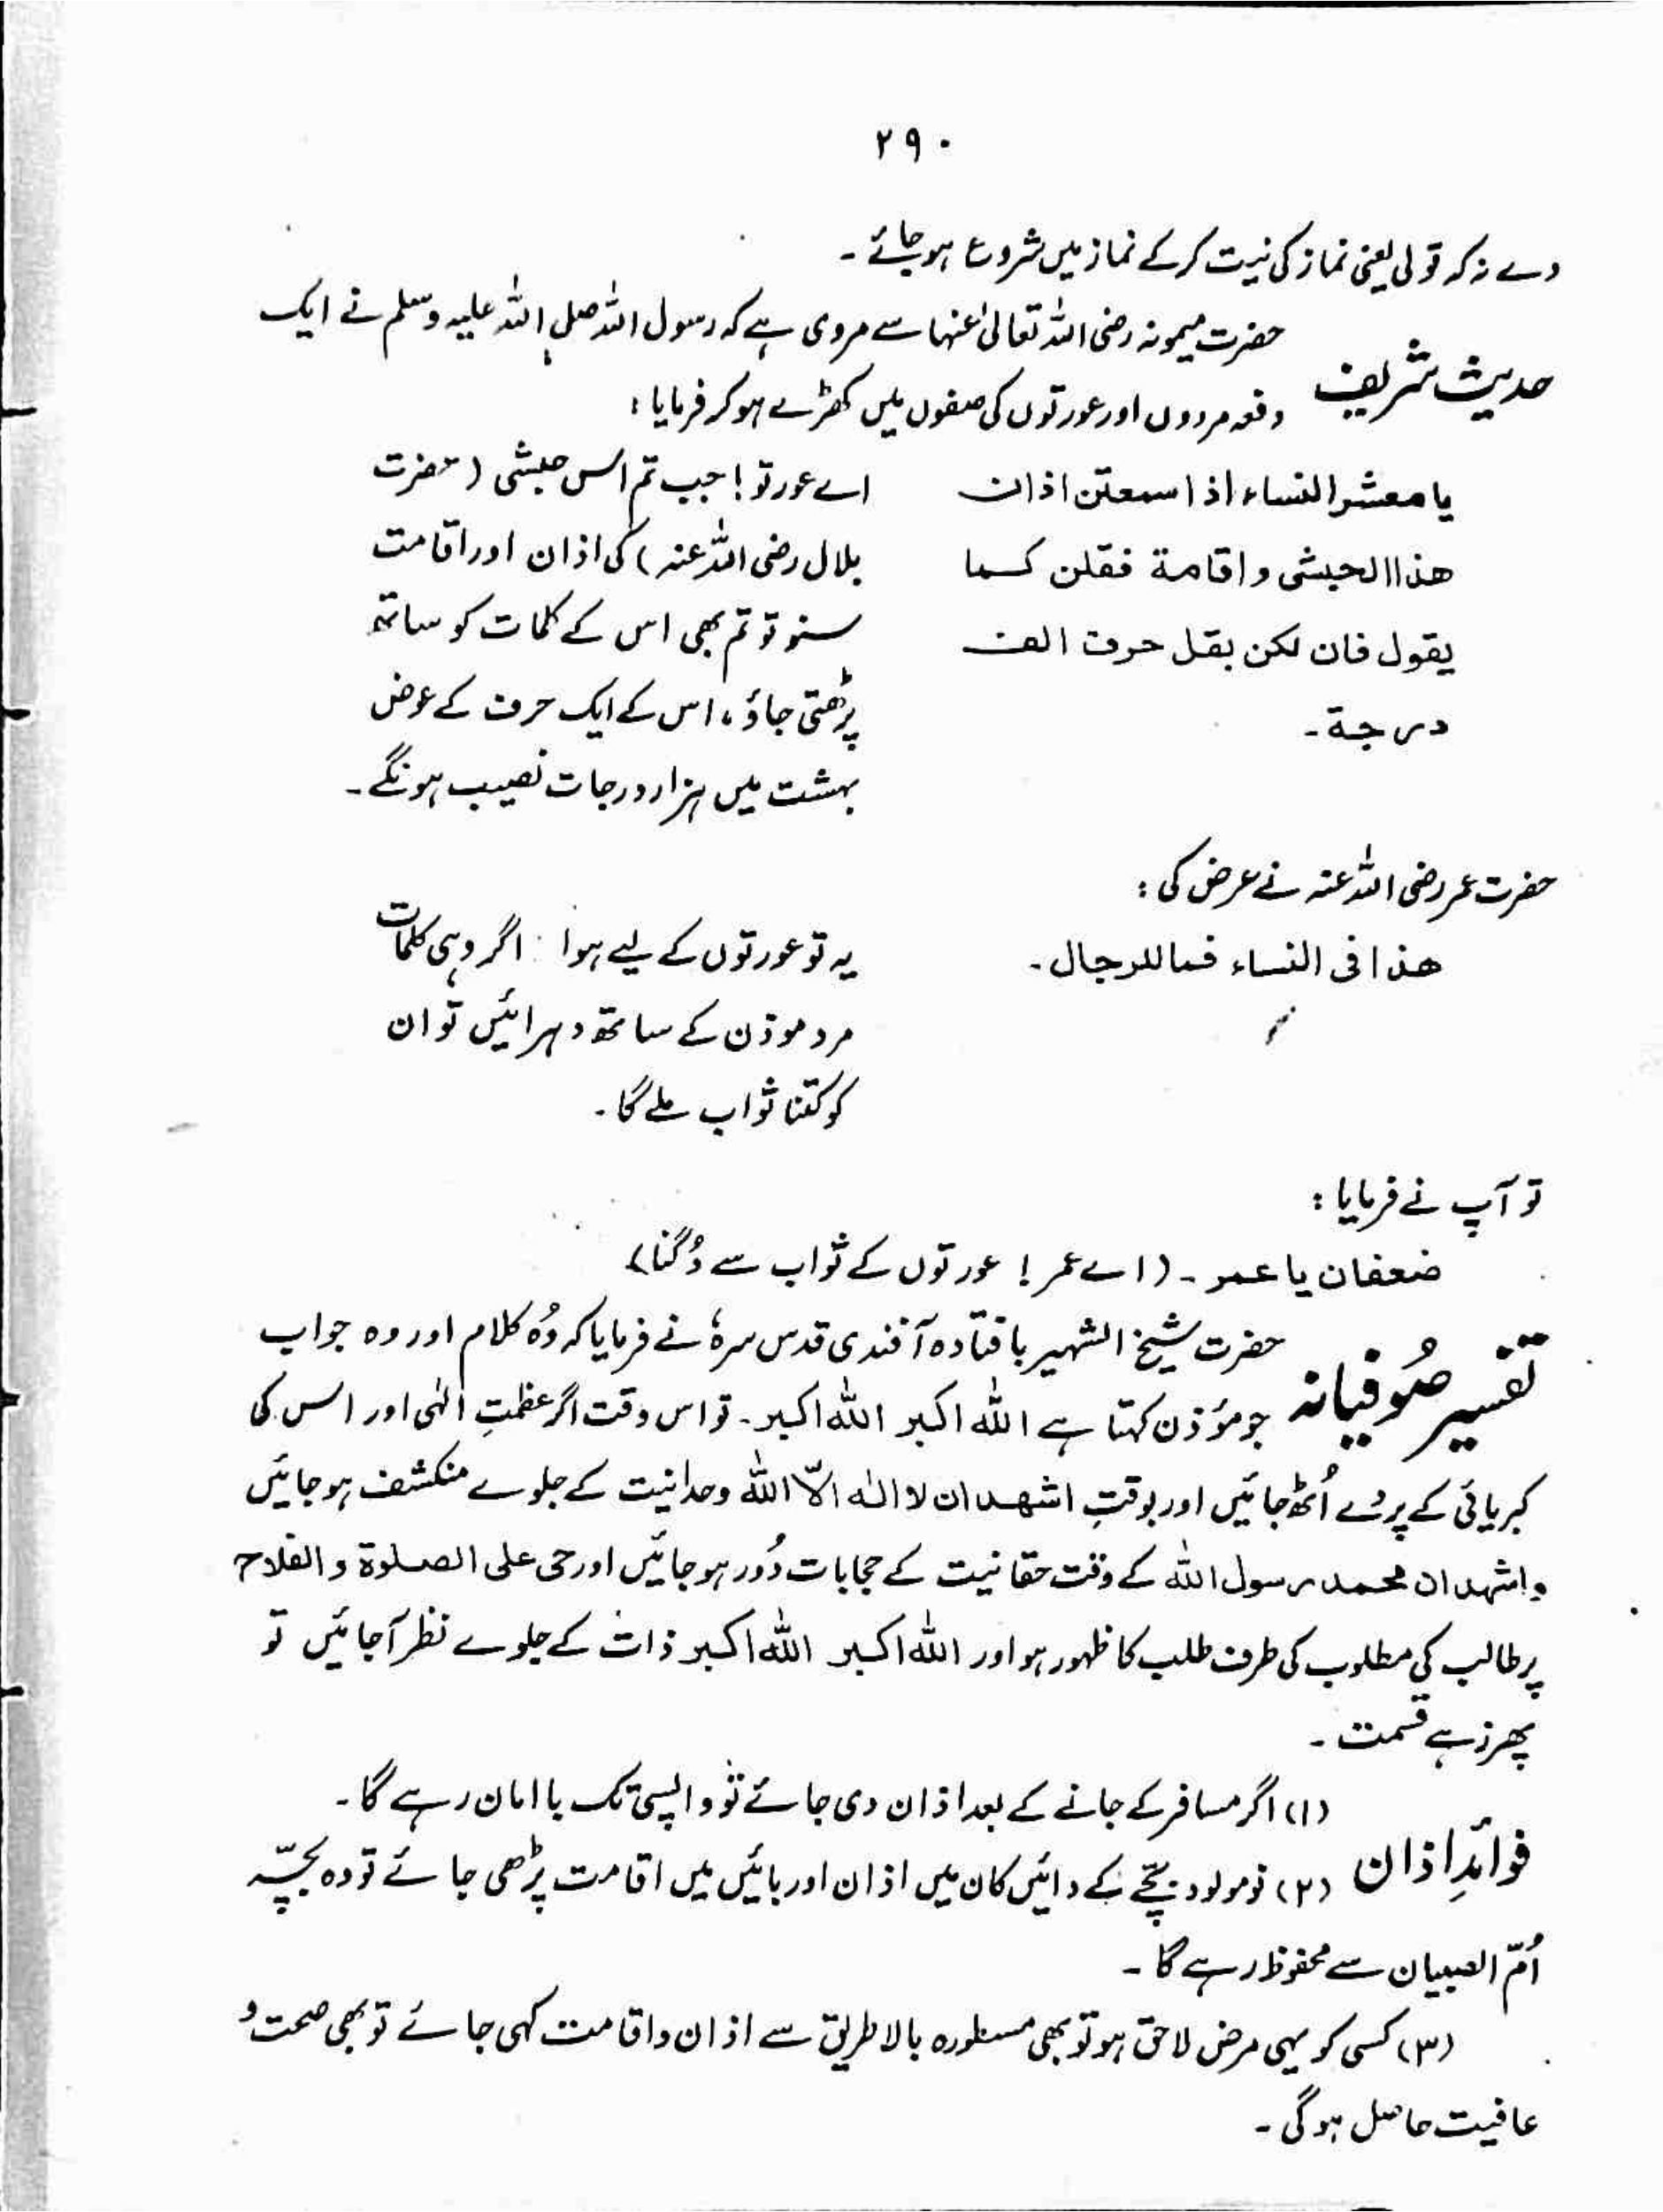 ۲۹۰
دے نہ کہ قولی یعنی نماز کی نیت کر کے نماز میں شروع ہو جائے۔
حدیث شریف
حضرت میمونہ رضی اللہ تعالیٰ عنہا سے مروی ہے کہ رسول اللہ صلی اللہ علیہ وسلم نے ایک
دفعہ مردوں اور عورتوں کی صفوں میں کھڑے ہو کر فرمایا :
یا معشر النساء اذا سمعتن اذان
ھذا الحبشی و اقامة فقلن کما
یقول فان لکن بقل حرف الف
درجة۔
اے عورتو! جب تم اس حبشی (حضرت
بلال رضی اللہ عنہ) کی اذان اور اقامت
سنو تو تم بھی اس کے کلمات کو ساتھ
پڑھتی جاؤ، اس کے ایک حرف کے عوض
بہشت میں ہزار درجات نصیب ہونگے۔
حضرت عمر رضی اللہ عنہ نے عرض کی :
ھذا فی النساء فما للرجال۔
یہ تو عورتوں کے لیے ہوا اگر وہی کلمات
مرد موذن کے ساتھ دہرائیں تو ان
کو کتنا ثواب ملے گا۔
تو آپ نے فرمایا :
ضعفان یا عمر۔ (اے عمر! عورتوں کے ثواب سے دُگنا)
تفسیر صُوفیانہ
حضرت شیخ الشہیر بافتادہ آفندی قدس سرہٗ نے فرمایا کہ وُہ کلام اور وہ جواب
جو مؤذن کہتا ہے اللہ اکبر اللہ اکبر۔ تو اس وقت اگر عظمتِ الٰہی اور اس کی
کبریائی کے پردے اُٹھ جائیں اور بوقتِ اشھد ان لا الٰہ الّا اللہ وحدانیت کے جلوے منکشف ہو جائیں
و اشھد ان محمد رسول اللہ کے وقت حقانیت کے حجابات دُور ہو جائیں اور حی علی الصلوٰۃ و الفلاح
پر طالب کی مطلوب کی طرف طلب کا ظہور ہو اور اللہ اکبر اللہ اکبر ذات کے جلوے نظر آجائیں تو
پھر زہے قسمت۔
فوائدِ اذان
(۱) اگر مسافر کے جانے کے بعد اذان دی جائے تو واپسی تک باامان رہے گا۔
(۲) نومولود بچّے کے دائیں کان میں اذان اور بائیں میں اقامت پڑھی جائے تو وہ بچّہ
اُمّ الصبیان سے محفوظ رہے گا۔
(۳) کسی کو یہی مرض لاحق ہو تو بھی مسطورہ بالا طریق سے اذان و اقامت کہی جائے تو بھی صحت و
عافیت حاصل ہو گی۔